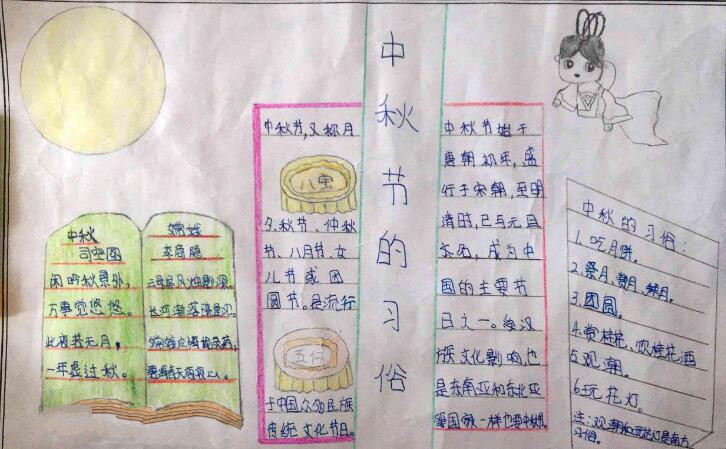 中秋节的习俗
中秋
司空图
闲吟秋景外,
万事觉悠悠。
此夜若无月,
一年虚过秋。
嫦娥
李商隐
长河渐落晓星沉。
中秋节,又称月
八宝
夕、秋节、仲秋
节、八月节、女
儿节或团
圆节。是流行
五仁
于中国众多民族
传统文化节日。
中秋节始于
唐朝初年,盛
行于宋朝,至明
清时,已与元旦
齐名,成为中
国的主要节
日之一。受汉
族文化影响,也
是东南亚和东北亚
中秋的习俗:
1.吃月饼。
2.祭月、赏月、拜月。
3.团圆。
4.赏桂花、饮桂花酒
5.观潮。
6.玩花灯。
习俗。